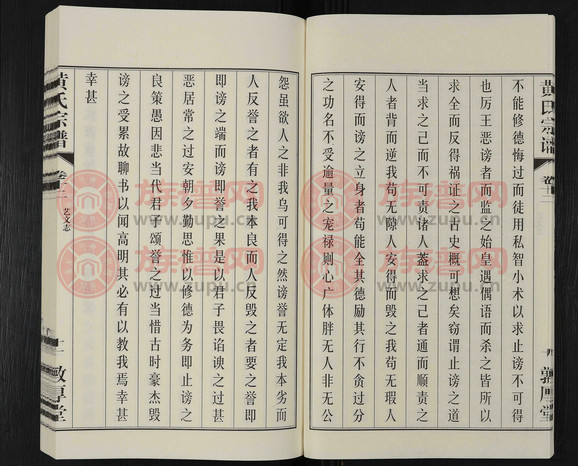 黄氏宗谱
卷十二
不能修德悔过而徒用私智小术以求止谤不可得
也厉王恶谤者而监之始皇遇偶语而杀之皆所以
求全而反得祸证之古史概可想矣窃谓止谤之道
当求之己而不可责诸人盖求之己者通而顺责之
人者背而逆我苟无隙人安得而毁之我苟无瑕人
安得而谤之立身者苟能全其德励其行不贪过分
之功名不受逾量之宠禄则心广体胖无人非无公
怨虽欲人之非我乌可得之然谤誉无定我本劣而
人反誉之者有之我本良而人反毁之者要之誉即
即谤之端而谤即誉之果是以君子畏谄谀之过甚
恶居常之过安朝夕勤思惟以修德为务即止谤之
良策愚因悲当代君子颂誉之过当惜古时豪杰毁
谤之受累故聊书以闻高明其必有以教我焉幸甚
幸甚
黄氏宗谱
卷十二
艺文志
敦厚堂
族谱网
www.zupu.cn
族谱网
www.zupu.cn